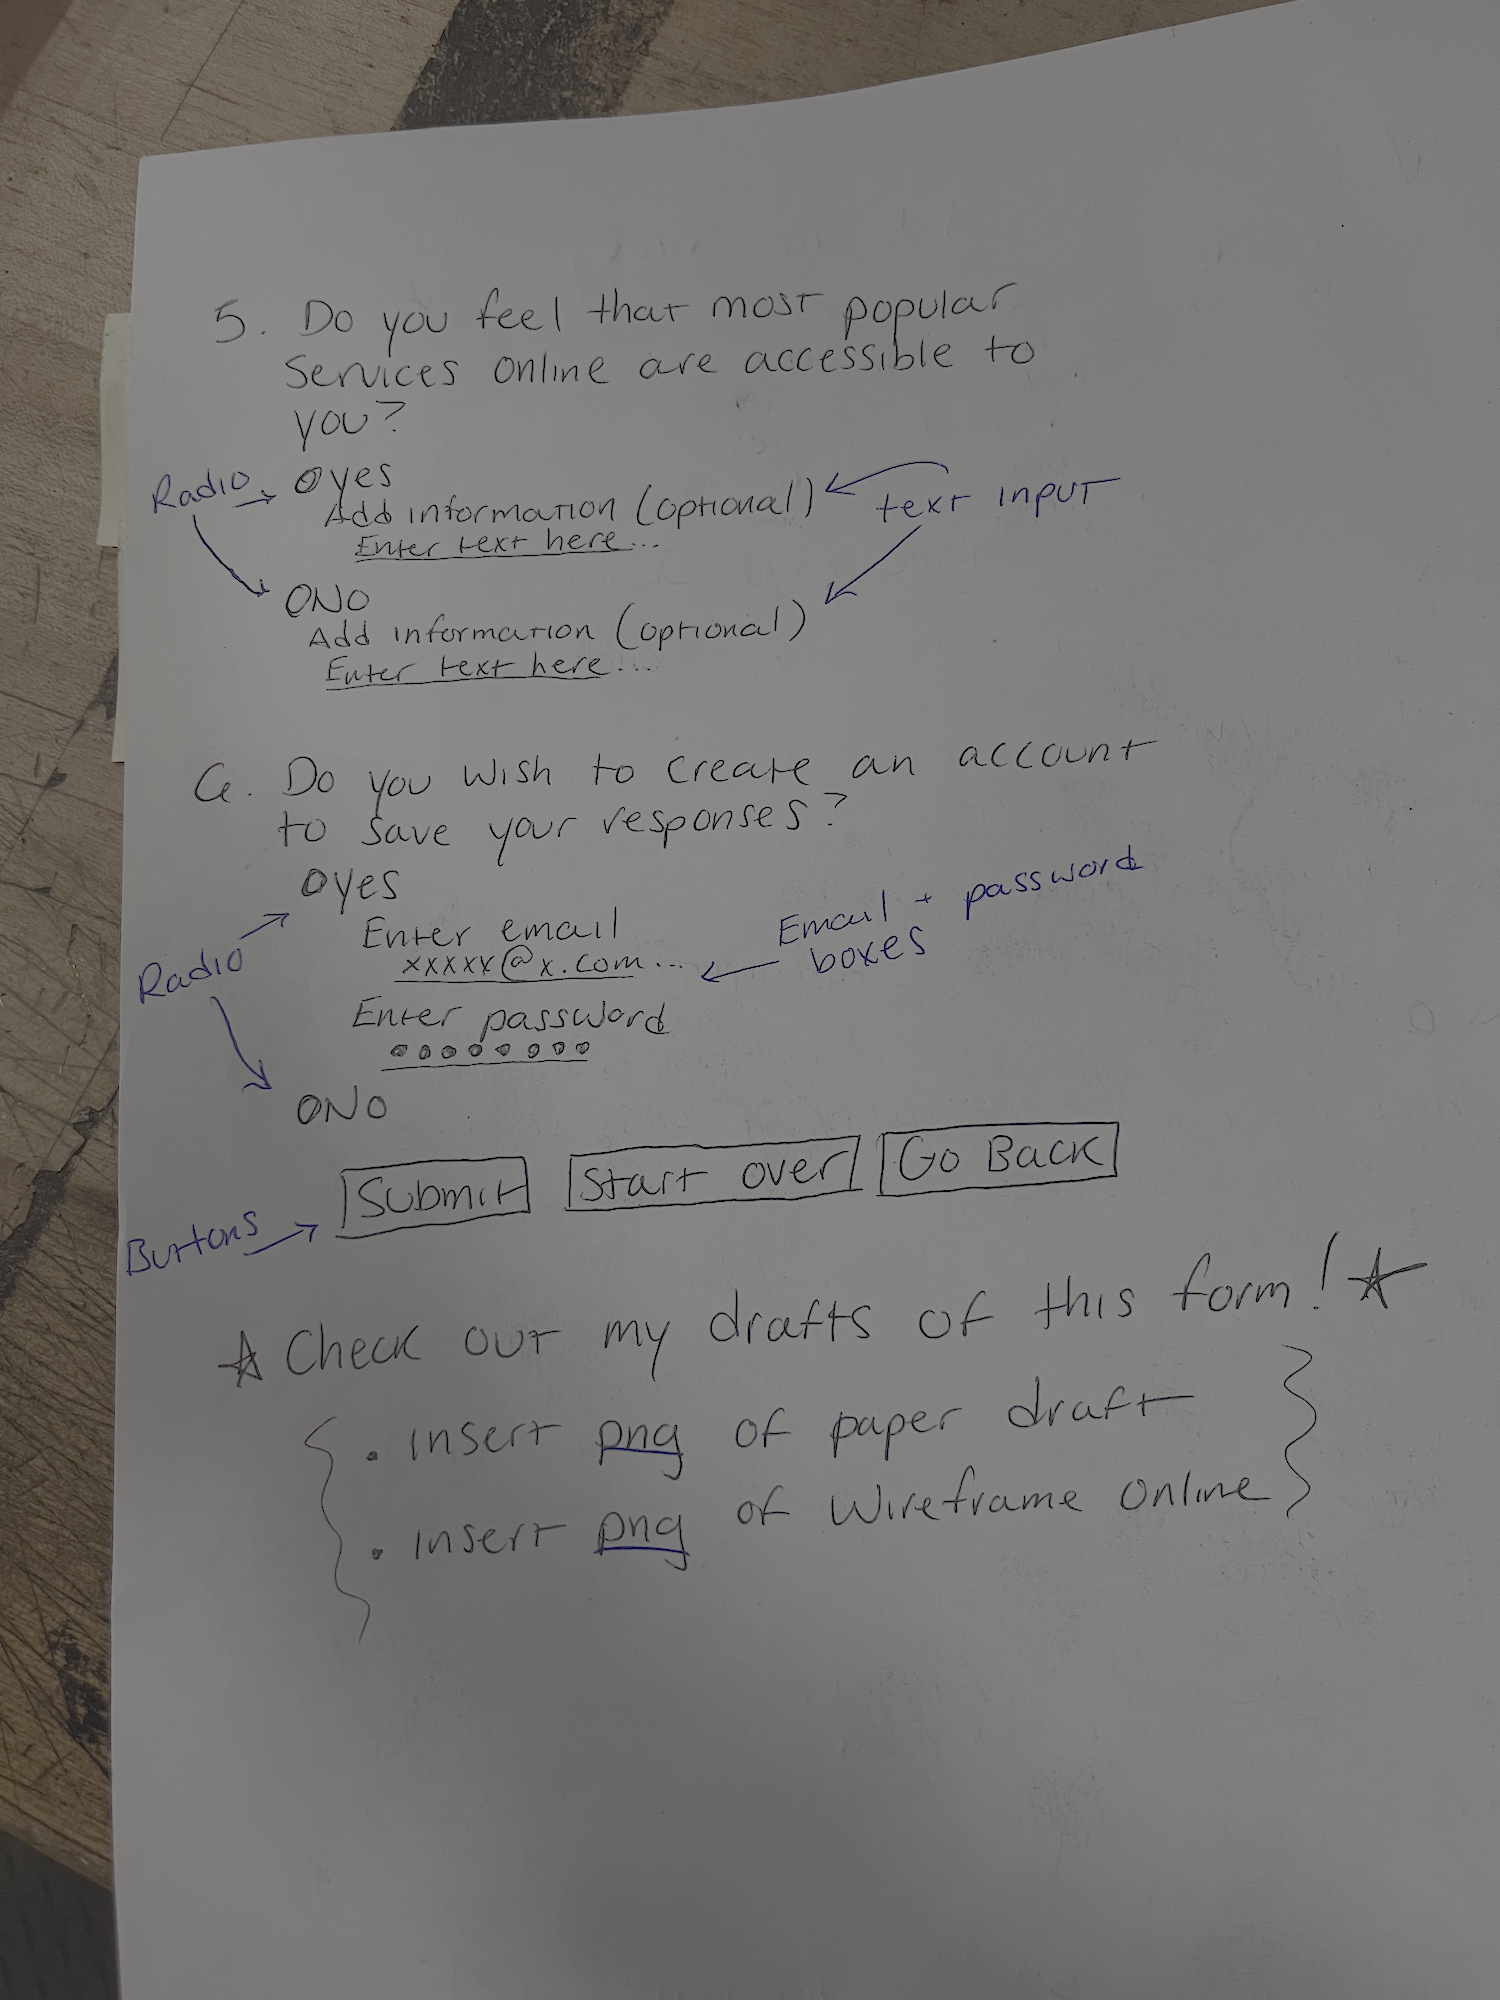 5. Do you feel that most popular
services online are accessible to
you?
Radio
yes
Add information (optional)
text input
Enter text here...
NO
Add information (optional)
Enter text here...
6. Do you wish to create an account
to save your responses?
yes
Enter email
Email + password
boxes
xxxxx@x.com...
Radio
Enter password
NO
Submit
Start over
Go Back
Buttons
Check out my drafts of this form!
• insert png of paper draft
• insert png of wireframe online